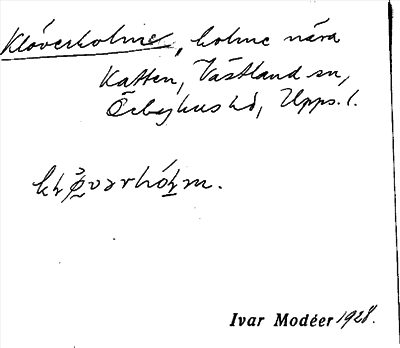 Klöverholme, holme nära
Katten, Västland sn,
Örbyhus hd, Upps. l.
Ivar Modéer 1928.